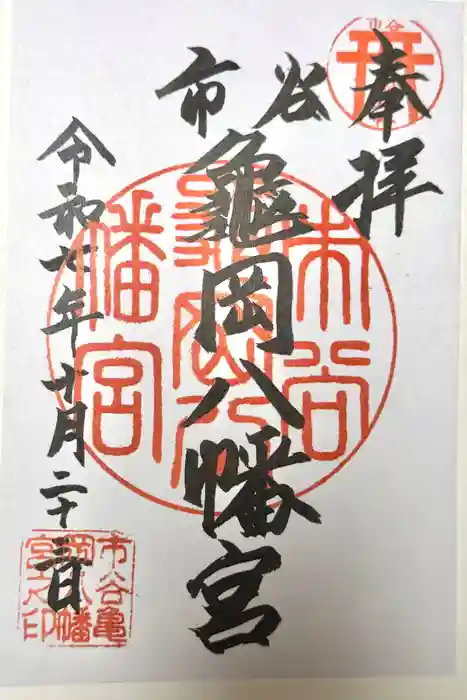 奉拝
市谷
龜岡八幡宮
令和七年十一月二十三日
市谷
市谷
亀岡八
幡宮
市谷亀
岡八幡
宮之印